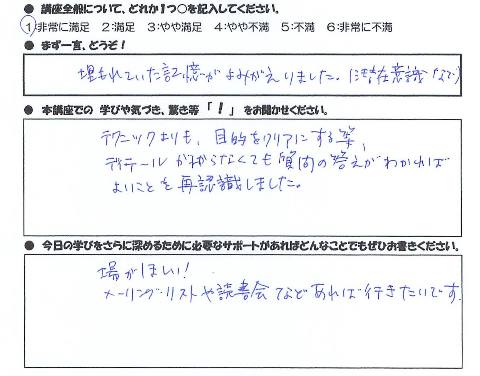 ● 講座全般について、どれか1つ○を記入してください。
1:非常に満足 2:満足 3:やや満足 4:やや不満 5:不満 6:非常に不満
● まず一言、どうぞ!
埋もれていた記憶がよみがえりました。(潜在意識などで)
● 本講座での 学びや気づき、驚き等 「!」 をお聞かせください。
テクニックよりも、目的をクリアにする事、
ディテールがわからなくても質問の答えがわかれば
よいことを再認識しました。
● 今日の学びをさらに深めるために必要なサポートがあればどんなことでもぜひお書きください。
場がほしい!
メーリング・リストや読書会などあれば行きたいです。